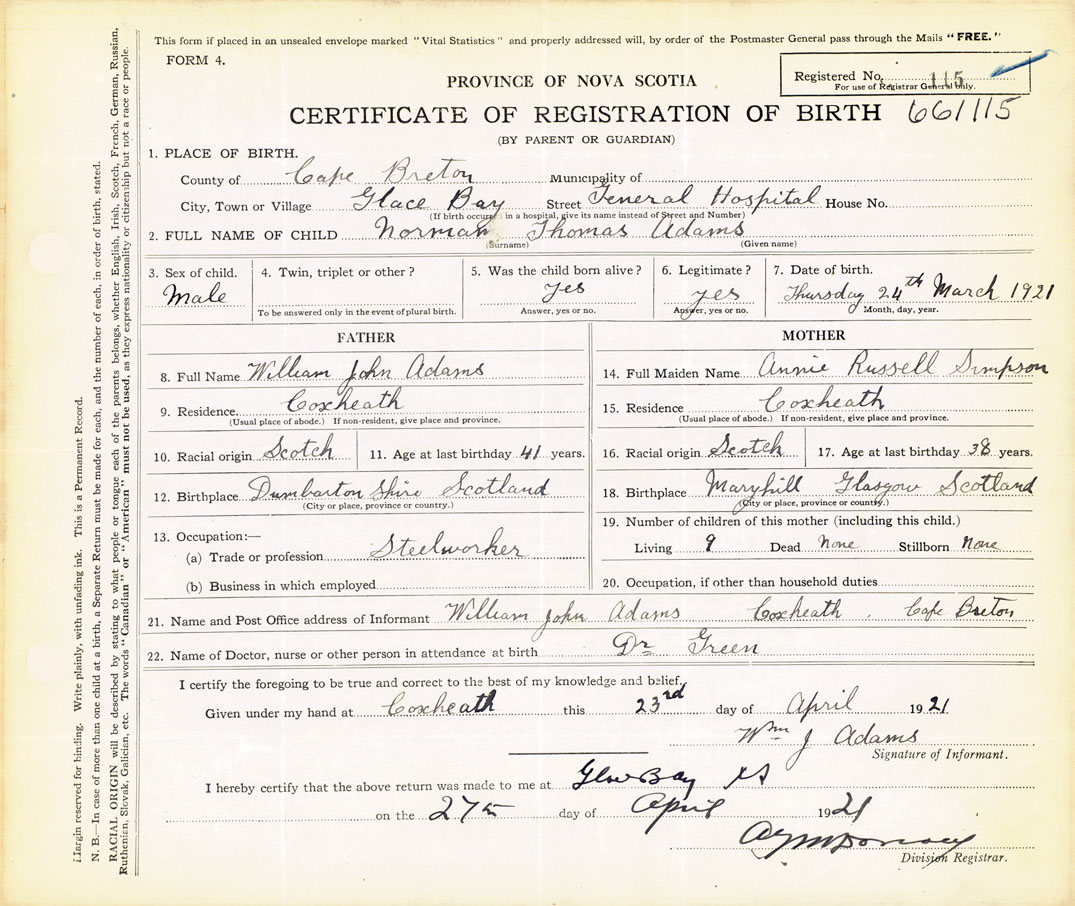 This form if placed in an unsealed envelope marked "Vital Statistics" and properly addressed will, by order of the Postmaster General pass through the Mails "FREE."
FORM 4.
Registered No. 115
For use of Registrar General only.
PROVINCE OF NOVA SCOTIA
CERTIFICATE OF REGISTRATION OF BIRTH 661115
(BY PARENT OR GUARDIAN)
1. PLACE OF BIRTH.
County of Cape Breton Municipality of
City, Town or Village Glace Bay Street General Hospital House No.
(If birth occurs in a hospital, give its name instead of Street and Number)
2. FULL NAME OF CHILD Norman Thomas Adams
(Surname) (Given name)
3. Sex of child. Male
4. Twin, triplet or other?
To be answered only in the event of plural birth.
5. Was the child born alive? yes
Answer, yes or no.
6. Legitimate? yes
Answer, yes or no.
7. Date of birth. Thursday 24th March 1921
Month, day, year.
FATHER
8. Full Name William John Adams
9. Residence. Coxheath
(Usual place of abode.) If non-resident, give place and province.
10. Racial origin Scotch 11. Age at last birthday 41 years.
12. Birthplace Dumbarton Shire Scotland
(City or place, province or country.)
13. Occupation:—
(a) Trade or profession Steelworker
(b) Business in which employed
MOTHER
14. Full Maiden Name Annie Russell Simpson
15. Residence Coxheath
(Usual place of abode. If non-resident, give place and province.
16. Racial origin Scotch 17. Age at last birthday 38 years.
18. Birthplace Maryhill Glasgow Scotland
(City or place, province or country.)
19. Number of children of this mother (including this child.)
Living 9 Dead None Stillborn None
20. Occupation, if other than household duties
21. Name and Post Office address of Informant William John Adams Coxheath . Cape Breton
22. Name of Doctor, nurse or other person in attendance at birth Dr Green
I certify the foregoing to be true and correct to the best of my knowledge and belief.
Given under my hand at Coxheath this 23rd day of April 1921
Wm J Adams
Signature of Informant.
I hereby certify that the above return was made to me at Glace Bay NS
on the 27th day of April 1921
Division Registrar.
Margin reserved for binding. Write plainly, with unfading ink. This is a Permanent Record.
N. B.—In case of more than one child at a birth, a Separate Return must be made for each, and the number of each, in order of birth, stated.
RACIAL ORIGIN will be described by stating to what people or tongue each of the parents belongs, whether English, Irish, Scotch, French, German, Russian,
Ruthenian, Slovak, Galician, etc. The words "Canadian" or "American" must not be used, as they express nationality or citizenship but not a race or people.